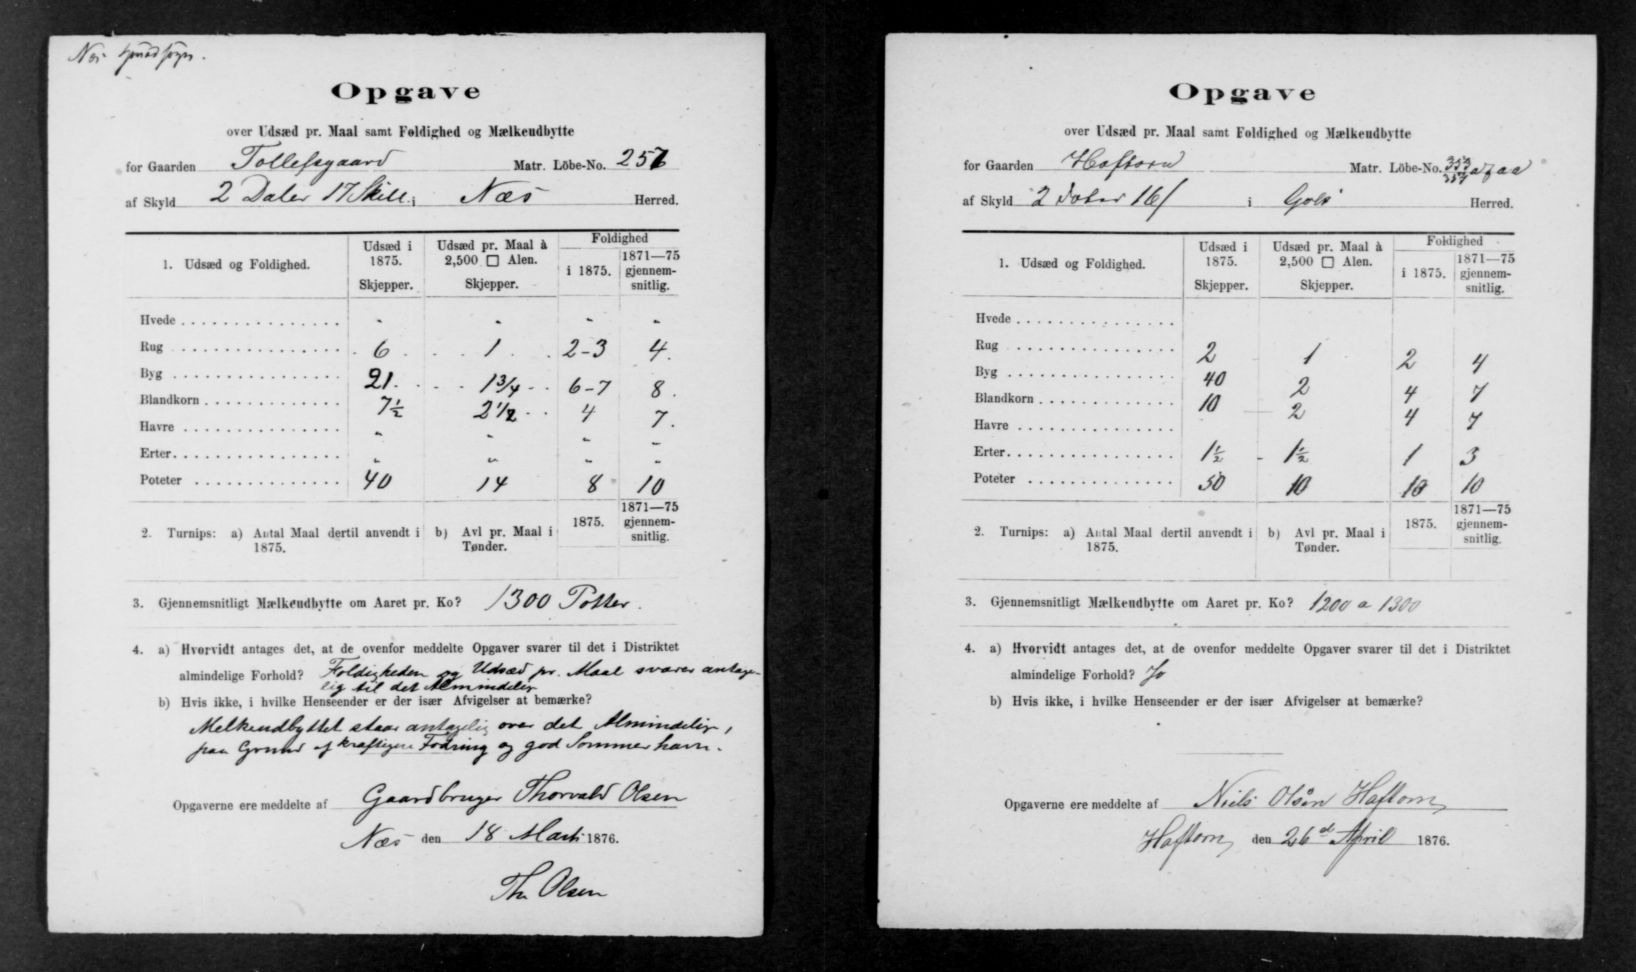 Opgave
over Udsæd pr. Maal samt Foldighed og Mælkeudbytte
for Gaarden Tollefsgaard Matr. Löbe-No. 257
af Skyld 2 Daler 17 Skill. i Næs Herred.
1. Udsæd og Foldighed. Udsæd i 1875. Skjepper. Udsæd pr. Maal à 2,500 □ Alen. Skjepper. Foldighed i 1875. 1871—75 gjennem-snitlig.
Hvede - - - -
Rug 6 1 2-3 4
Byg 21 1 3/4 6-7 8
Blandkorn 7 1/2 2 1/2 4 7
Havre - - - -
Erter - - - -
Poteter 40 14 8 10
2. Turnips: a) Antal Maal dertil anvendt i 1875. b) Avl pr. Maal i Tønder. 1875. 1871—75 gjennem-snitlig.
3. Gjennemsnitligt Mælkeudbytte om Aaret pr. Ko? 1300 Potter.
4. a) Hvorvidt antages det, at de ovenfor meddelte Opgaver svarer til det i Distriktet
almindelige Forhold? Foldigheden og Udsæd pr. Maal svarer antage-
lig til det Almindelige
b) Hvis ikke, i hvilke Henseender er der især Afvigelser at bemærke?
Melkeudbyttet staar antagelig over det Almindelige,
paa Grund af kraftigere Fodring og god Sommerhavn.
Opgaverne ere meddelte af Gaardbruger Thorvald Olsen
Næs den 18 Marts 1876.
Th. Olsen
Opgave
over Udsæd pr. Maal samt Foldighed og Mælkeudbytte
for Gaarden Haftorn Matr. Löbe-No.
af Skyld 2 Daler 16 i Gols Herred.
1. Udsæd og Foldighed. Udsæd i 1875. Skjepper. Udsæd pr. Maal à 2,500 □ Alen. Skjepper. Foldighed i 1875. 1871—75 gjennem-snitlig.
Hvede
Rug 2 1 2 4
Byg 40 2 4 7
Blandkorn 10 2 4 7
Havre
Erter 1 1/2 1 1/2 1 3
Poteter 50 10 10 10
2. Turnips: a) Antal Maal dertil anvendt i 1875. b) Avl pr. Maal i Tønder. 1875. 1871—75 gjennem-snitlig.
3. Gjennemsnitligt Mælkeudbytte om Aaret pr. Ko? 1200 a 1300
4. a) Hvorvidt antages det, at de ovenfor meddelte Opgaver svarer til det i Distriktet
almindelige Forhold? Jo
b) Hvis ikke, i hvilke Henseender er der især Afvigelser at bemærke?
Opgaverne ere meddelte af Niels Olsen Haftorn
Haftorn den 26 April 1876.